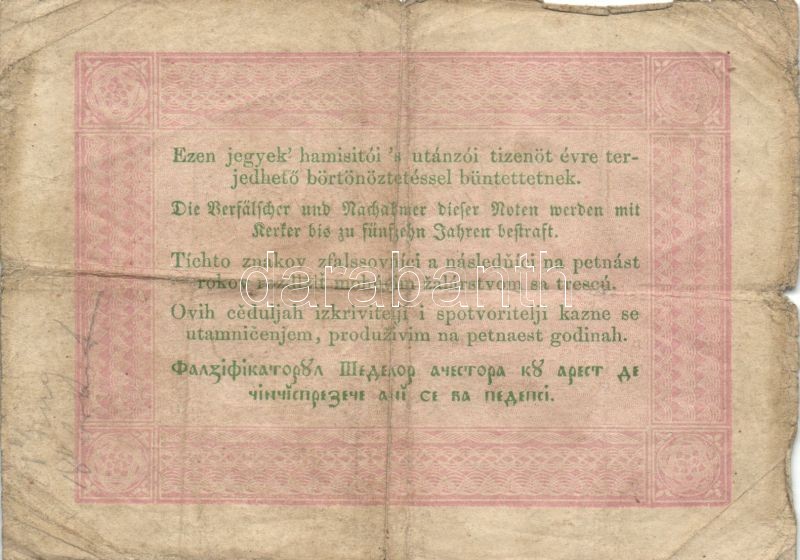 Ezen jegyek' hamisitói 's utánzói tizenöt évre ter-
jedhető börtönöztetéssel büntettetnek.
Die Verfälscher und Nachahmer dieser Noten werden mit
Kerker bis zu fünfzehn Jahren bestraft.
Tíchto znakov zfalssovňíci a následňíci na petnást
rokov žalárstvom sa trescú.
Ovih cĕduljah izkrivitelji i spotvoritelji kazne se
utamničenjem, produživim na petnaest godinah.
Фалзіфікаторꙋл Шеделор ачестора кꙋ арест де
чінчіспрезече аній се ва педепсі.
darabanth